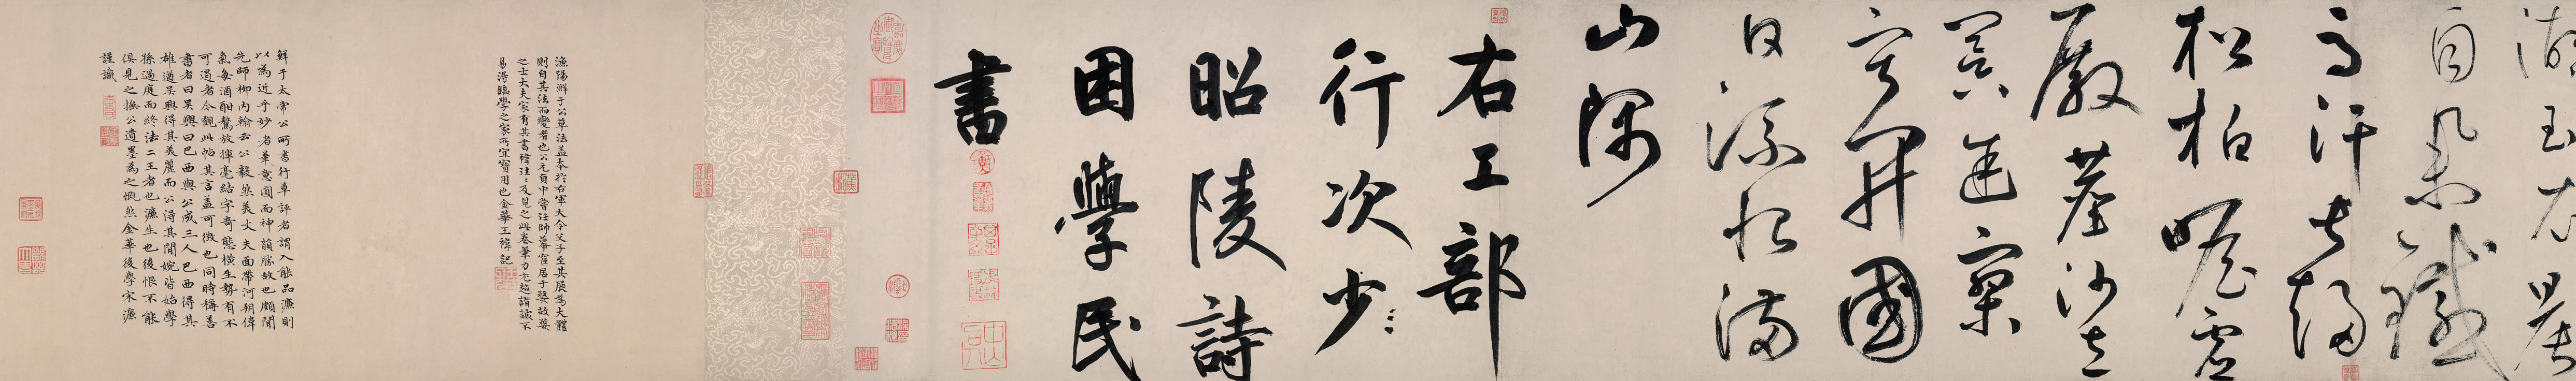 湖玉衣晨
自舉鐵
馬汗常趨
松柏瞻虛
殿塵沙立
暝途寂
寥開國
日流恨滿
山隅
右工部
行次少
昭陵詩
困學民
書
漁陽鮮于公草法蓋本於右軍大令父子至其展為大體
則自其法而變者也公元貞中嘗仕師幕宦居于婺故婺
之士大夫家有其書禕往〻及見之此卷筆力尤遒詣誠不
易得臨學之家所宜寶用也金華王禕記
鮮于太常公所書行草評者謂入能品濂則
以為近乎妙者筆意圓而神韻勝故也頗聞
先師柳內翰云公毅然美丈夫面帶河朔偉
氣每酒酣驁放揮毫結字奇態橫生勢有不
可遏者今觀此帖其言蓋可徵也同時稱善
書者曰吳興曰巴西與公咸三人巴西得其
雄遒吳興得其美麗而公得其閒婉皆始學
孫過庭而終法二王者也濂生也後恨不能
俱見之撫公遺墨為之慨然金華後學宋濂
謹識